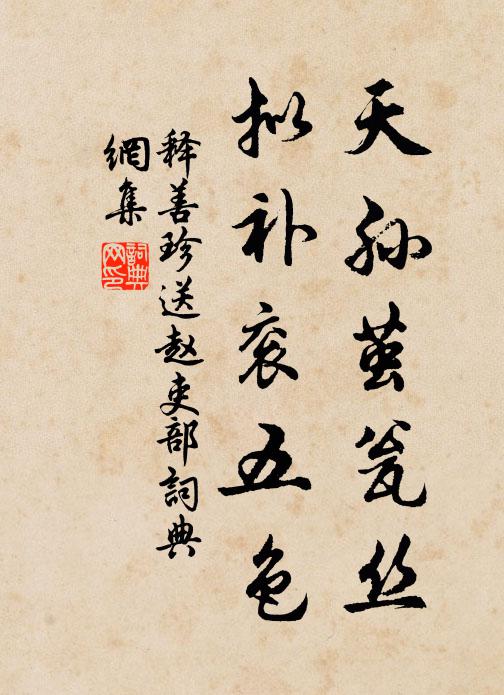 天孙茧瓮丝
拟补衮五色
释善珍送赵吏部詞典
網集
詞典網印